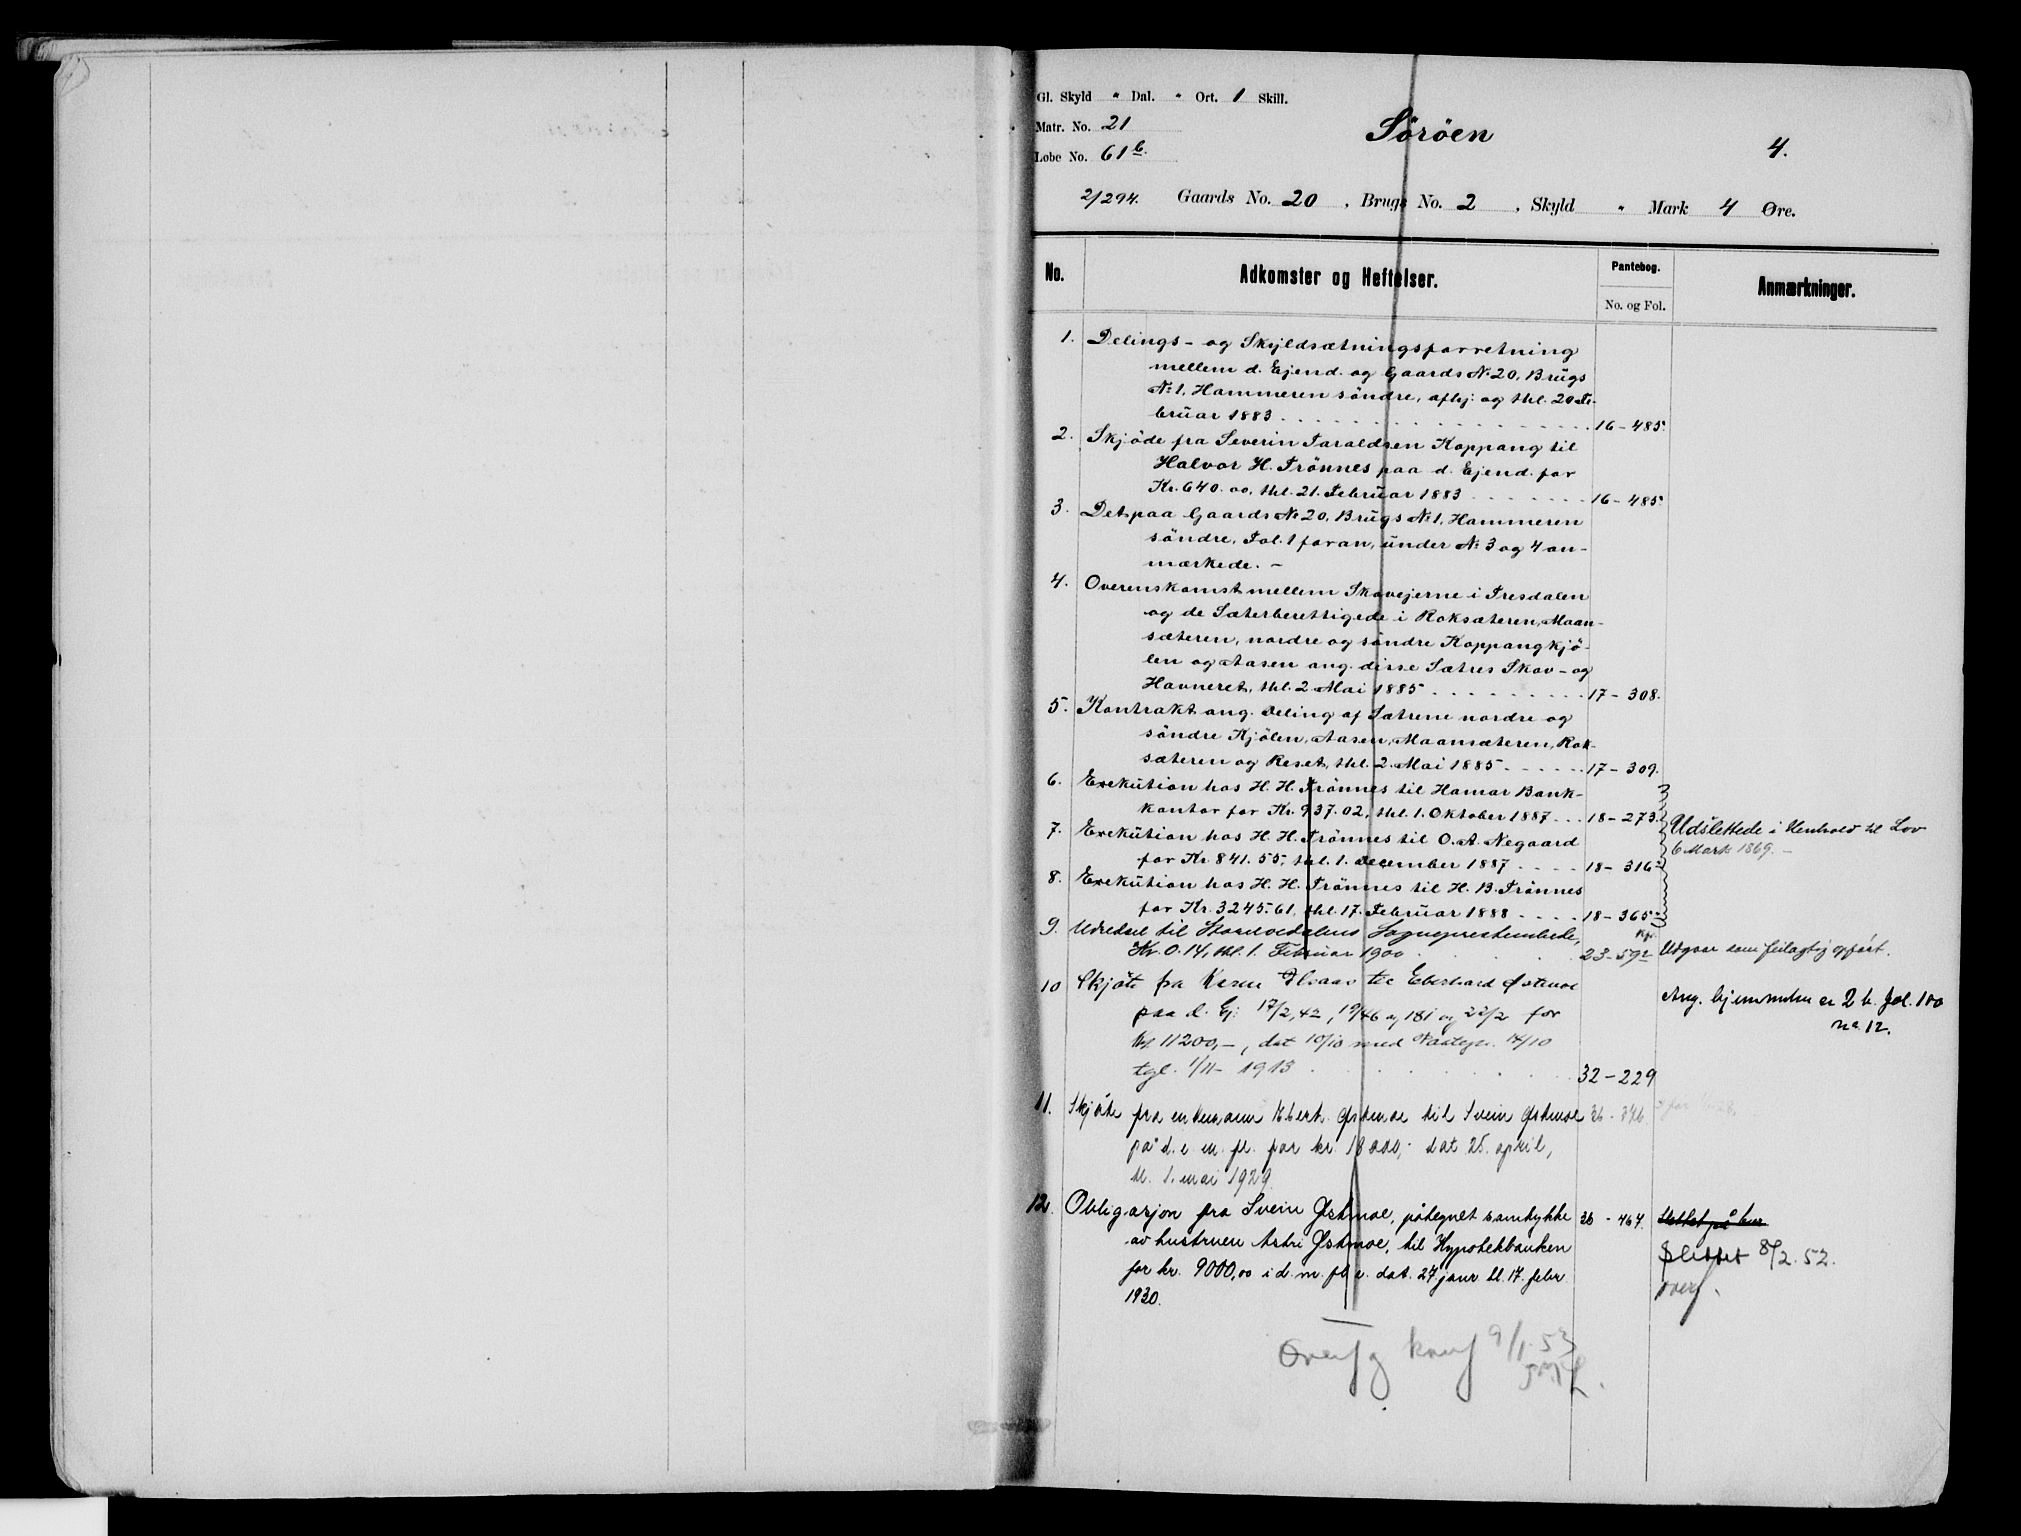 Gl. Skyld " Dal. " Ort. 1 Skill.
Matr. No. 21
Løbe No. 61 b.
Söröen
4.
2/294. Gaards No. 20, Brugs No. 2, Skyld " Mark 4 Øre.
No. Adkomster og Heftelser. Pantebog. No. og Fol. Anmærkninger.
1. Delings- og Skyldsætningsforretning
mellem d. Ejend. og Gaards No 20, Brugs
No 1, Hammeren söndre, afhj. og thl. 20 Fe-
bruar 1883 16-485.
2. Skjöde fra Severin Taraldsen Koppang til
Halvor H. Trönnes paa d. Ejend. for
Kr. 640.00, thl. 21. Februar 1883 16-485.
3. Det paa Gaards No 20, Brugs No 1, Hammeren
söndre, Fol. 1 foran, under No 3 og 4 an-
mærkede. -
4. Overenskomst mellem Skovejerne i Tresdalen
og de Sæterberettigede i Roksæteren, Maan-
sæteren, nordre og söndre Koppangkjö-
len og Aasen ang. disse Sætres Skov- og
Havneret, thl. 2 Mai 1885 17-308.
5. Kontrakt ang. Deling af Sætrene nordre og
söndre Kjölen, Aasen, Maansæteren, Rok-
sæteren og Reset, thl. 2. Mai 1885 17-309.
6. Exekution hos H. H. Trönnes til Hamar Bank-
kontor for Kr. 937.02, thl. 1. Oktober 1887 18-273.
7. Exekution hos H. H. Trönnes til O. A. Negaard
for Kr. 841.55, thl. 1. December 1887 18-316
8. Exekution hos H. H. Trönnes til H. B. Trönnes
for Kr. 3245.61, thl. 17. Februar 1888 18-365
Udslettede i Henhold til Lov
6 Marts 1869. -
9. Udredsel til Storelvedalens Sogneprestembede,
Kr. 0.14, thl. 1. Februar 1900 23-592 Udgaar som feilagtig opført.
10 Skjøte fra Karen til Eberhard Østmoe
paa d. Ej. 17/2, 42, 19/46 og 181 og 22/2 for
Kr 11200,-, dat 10/10 med Paategn. 14/10
tgl. 1/11- 1913 32-229
Ang. hjemmelen er 2 b. fol. 100
no. 12.
11. Skjøte fra enkemann Ebert. Østmoe til Svein Østmoe 36-376
på d. e. m. fl. for kr. 18000,- dat 25. april,
tl. 1. mai 1929.
12. Obligasjon fra Svein Østmoe, påtegnet samtykke 36-467.
av hustruen Astri Østmoe, til Hypotekbanken
for kr. 9000,00 i d. m. fl. e. dat. 27 janr tl. 17. febr.
1930.
Slettet på her
slettet 8/2.52.
overf.
Overf og konf 9/1.53